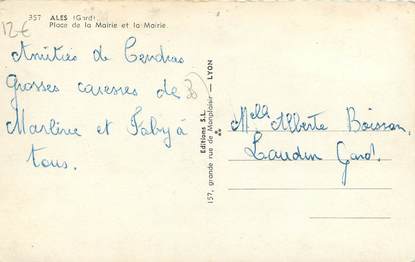 357 ALES (Gard).
Place de la Mairie et la Mairie.
12€
Amitiés de Cendras
grosses caresses de
Marlène et Faby à
tous.
Editions S.L.
157, grande rue de Monplaisir - LYON
Melle Alberte Boisson
Laudun Gard.